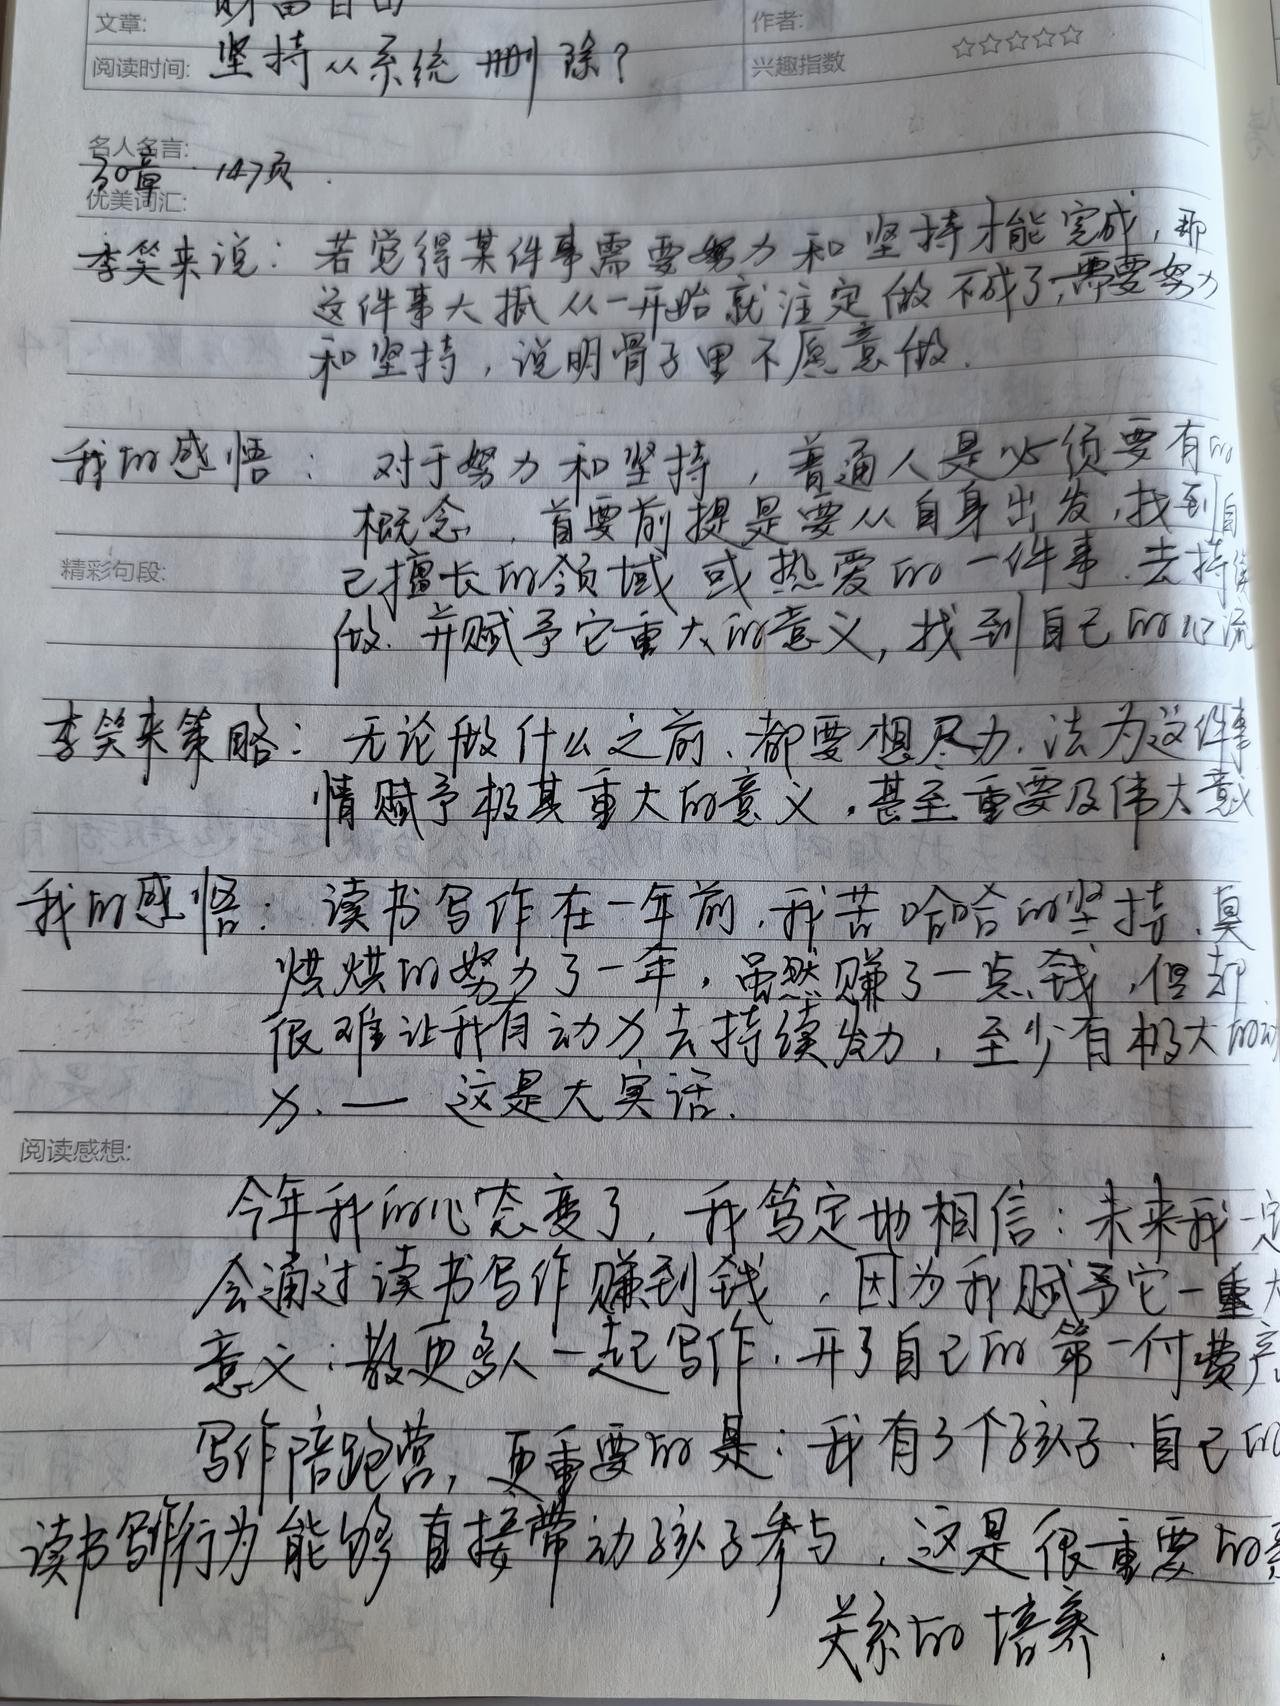 文章: 财富自由 作者:
阅读时间: 坚持从系统删除? 兴趣指数 ☆☆☆☆☆
名人名言:
30章 147页.
优美词汇:
李笑来说: 若觉得某件事需要努力和坚持才能完成, 那
这件事大抵从一开始就注定做不成了, 需要努力
和坚持, 说明骨子里不愿意做.
我的感悟: 对于努力和坚持, 普通人是必须要有的
概念, 首要前提是要从自身出发, 找到自
精彩句段: 己擅长的领域或热爱的一件事. 去持续
做. 并赋予它重大的意义, 找到自己的心流
李笑来策略: 无论做什么之前、都要想尽办法为这件事
情赋予极其重大的意义, 甚至重要及伟大意义
我的感悟: 读书写作在一年前, 我苦哈哈的坚持、真
烘烘的努力了一年, 虽然赚了一点钱, 但却
很难让我有动力去持续发力, 至少有极大的动
力. — 这是大实话.
阅读感想:
今年我的心态变了, 我笃定地相信: 未来我一定
会通过读书写作赚到钱, 因为我赋予它一重大
意义: 教更多人一起写作. 开了自己的第一付费
写作陪跑营, 更重要的是: 我有3个孩子. 自己的
读书写作行为能够直接带动孩子参与, 这是很重要的
关系的培养.